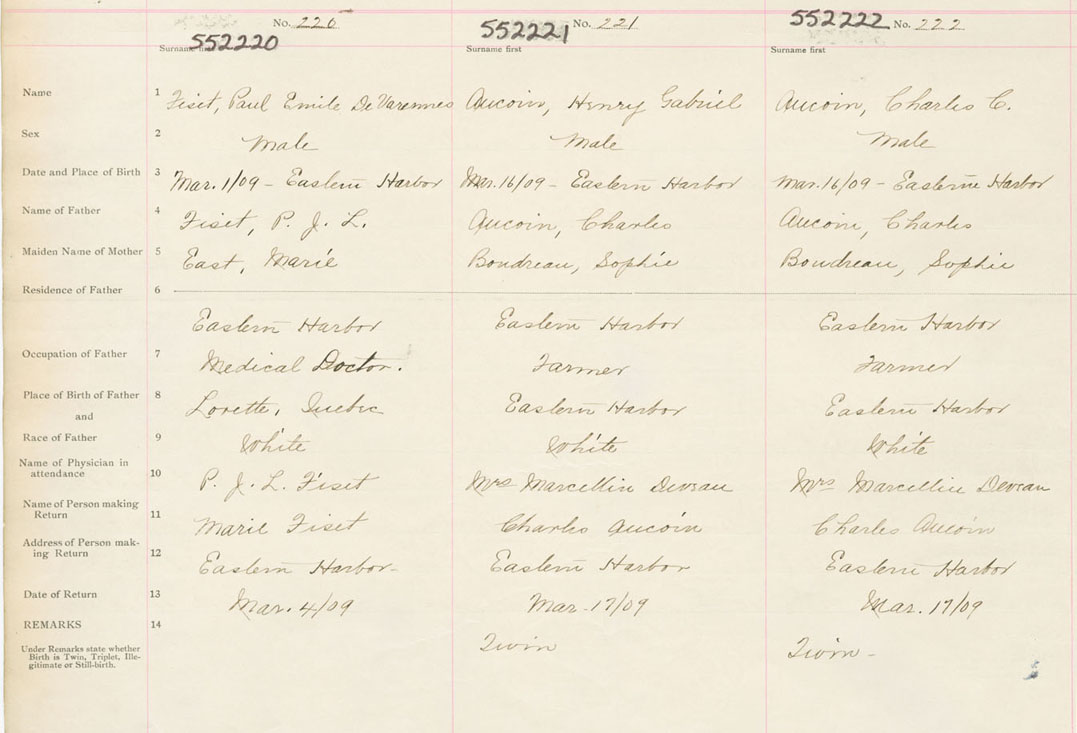 No. 220 No. 221 552222 No. 222
552220 552221
Surname first Surname first Surname first
Name 1 Fiset, Paul Emile De Varennes Aucoin, Henry Gabriel Aucoin, Charles C.
Sex 2 Male Male Male
Date and Place of Birth 3 Mar. 1/09 - Eastern Harbor Mar. 16/09 - Eastern Harbor Mar. 16/09 - Eastern Harbor
Name of Father 4 Fiset, P. J. L. Aucoin, Charles Aucoin, Charles
Maiden Name of Mother 5 East, Marie Boudreau, Sophie Boudreau, Sophie
Residence of Father 6
Eastern Harbor Eastern Harbor Eastern Harbor
Occupation of Father 7 Medical Doctor. Farmer Farmer
Place of Birth of Father 8 Lorette, Quebec Eastern Harbor Eastern Harbor
and
Race of Father 9 White White White
Name of Physician in
attendance 10 P. J. L. Fiset Mrs Marcellin Deveau Mrs Marcellin Deveau
Name of Person making
Return 11 Marie Fiset Charles Aucoin Charles Aucoin
Address of Person mak-
ing Return 12 Eastern Harbor - Eastern Harbor Eastern Harbor
Date of Return 13 Mar. 4/09 Mar. 17/09 Mar. 17/09
REMARKS 14
Under Remarks state whether Twin Twin -
Birth is Twin, Triplet, Ille-
gitimate or Still-birth.